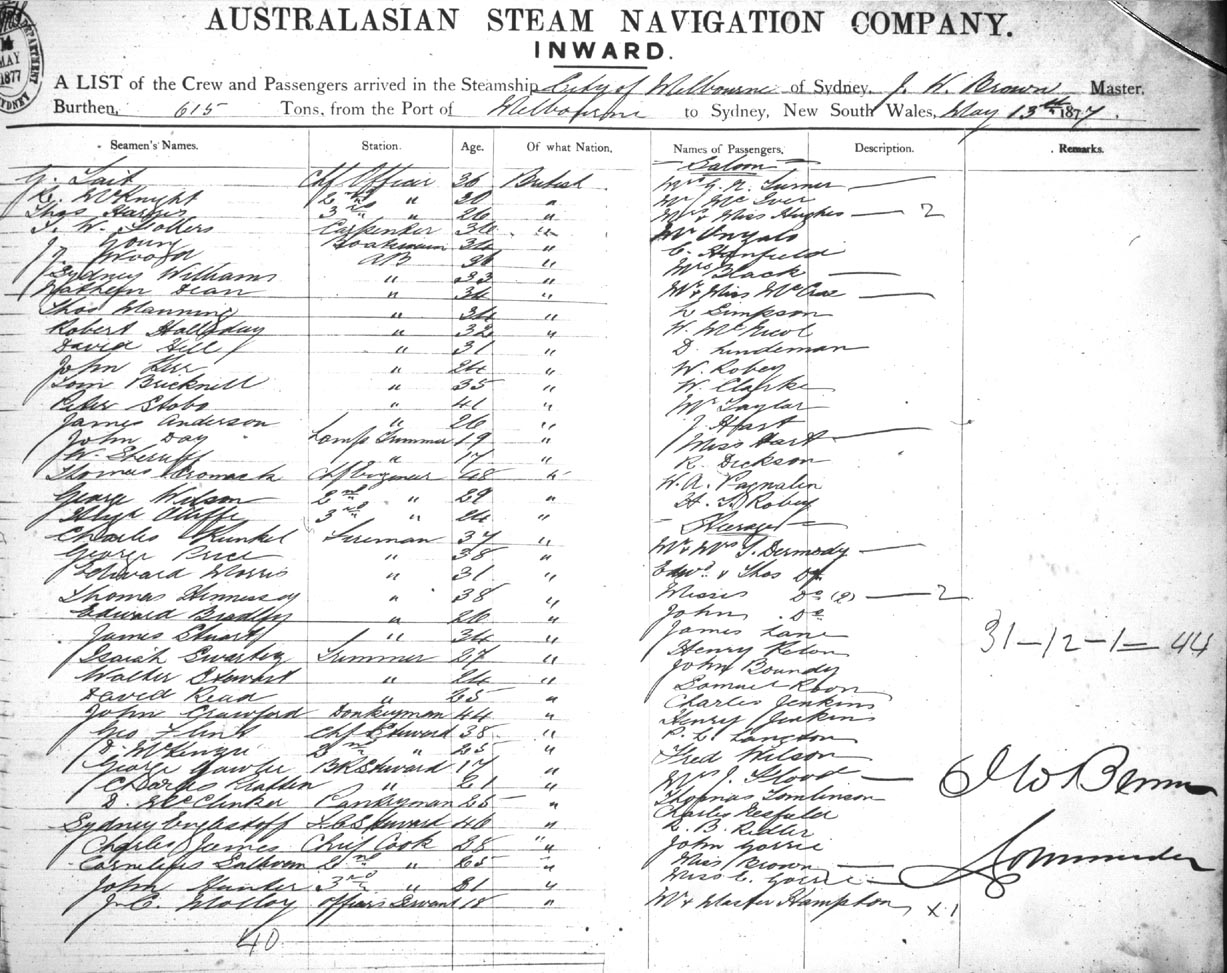 MAY
1877
DEPARTMENT
SYDNEY
AUSTRALASIAN STEAM NAVIGATION COMPANY.
INWARD.
A LIST of the Crew and Passengers arrived in the Steamship City of Melbourne of Sydney, J. W. Brown Master.
Burthen, 615 Tons, from the Port of Melbourne to Sydney, New South Wales, May 13th 1877.
Seamen's Names. Station. Age. Of what Nation, Names of Passengers, Description. Remarks.
Saloon
G. Tait Chf Officer 36 British Mrs G. N. Turner
R. McKnight 2nd " " Mr McIver
Thos Harris 3rd " 26 " Mrs & Miss Hughes 2
J. W. Carpenter 34 " Mr
Young Boatswain 34 " C.
J. Wood AB " Mrs Black
Sydney Williams " 33 " Mr & Miss McCrae
Dean " 34 " L Simpson
Thos Manning " 34 " W. McNicol
Robert Halliday " 32 " D. Lindeman
David Hill " 31 " W. Robey
John Kerr " 24 " W. Clarke
Tom Bucknell " 35 " Mr Taylor
Peter Stobo " 41 " J Hart
James Anderson " 26 " Miss Hart
John Day Lamp Trimmer 19 " R. Dickson
W. Sherriff " 17 " W. A.
Thomas Cromack Chf Engineer 48 " H. T. Robey
George Wilson 2nd " 29 " Steerage
Hugh 3rd " 24 " Mr & Mrs T. Dermody
Charles Kunkel Fireman 37 " Edwd & Thos Do
George Price " 38 " Misses Do (2) 2
Edward Morris " 31 " John Do
Thomas Hennessy " 38 " James Lane
Edward Bradley " 26 " Henry
James Stuart " 34 " John Boundy
Isaiah Swartey Trimmer 27 " Samuel
Walter Stewart " 24 " Charles Jenkins
David Read " 25 " Henry Jenkins
John Crawford Donkeyman 44 " Langton
Geo Flint Chf Steward 38 " Fred Wilson
D. McKenzie 2nd " 25 " Mrs J. Flood
George Bk Steward 17 " Thomas Tomlinson
Charles " 21 " Charles
D. McClinker Pantryman 25 " R. B. Ridler
Sydney Steward 40 " John Gorrie
Charles James Chief Cook 28 " Miss Brown
Cornelius 2nd " 25 " Miss C. Gorrie
John Hunter 3rd " 21 " Mr & Master Hampton x 1
J. C. Molloy Officers Servant 18 "
40
31-12-1=44
Commander